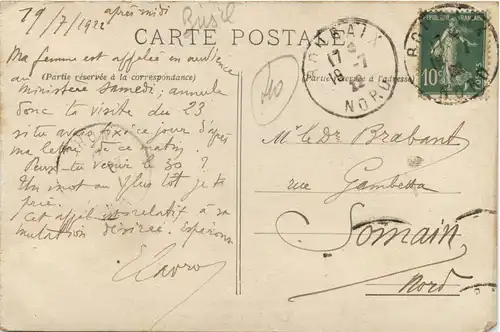 19/7/1922 après midi
Brésil
CARTE POSTALE
Ma femme est appelée en audience
au (Partie réservée à la correspondance)
Ministère Samedi; annule
donc ta visite du 23
si tu avais fixé ce jour d'après
ma lettre de ce matin
Peux-tu venir le 30 ?
Un mot au plus tôt je te
prie.
Cet appel est relatif à sa
mutation désirée. Espérons
(Partie réservée à l'adresse)
ROUBAIX
17
18-7
22
NORD
REPUBLIQUE FRANÇAISE
10c
Mr le Dr Brabant
rue Gambetta
Somain
Nord